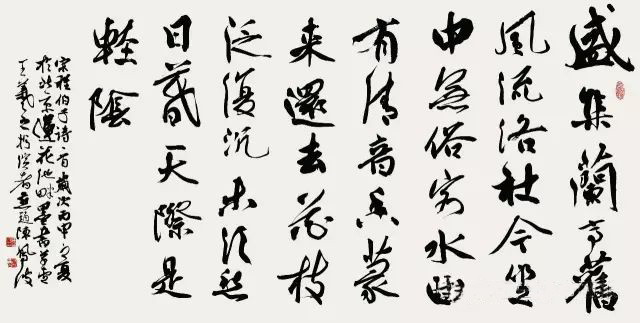 盛集蘭亭舊
風流洛社今坐
中無俗客水曲
有清音香篆
来還去花枝
泛復沉未須愁
日暮天際是
輕陰
宋程伯子诗一首歲次丙申之夏
於北京蓮花池畔墨香草堂
王羲之燕趙陳鳳波